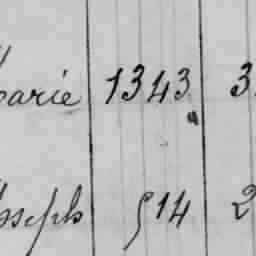 Marie 1343 3
Joseph 514 2